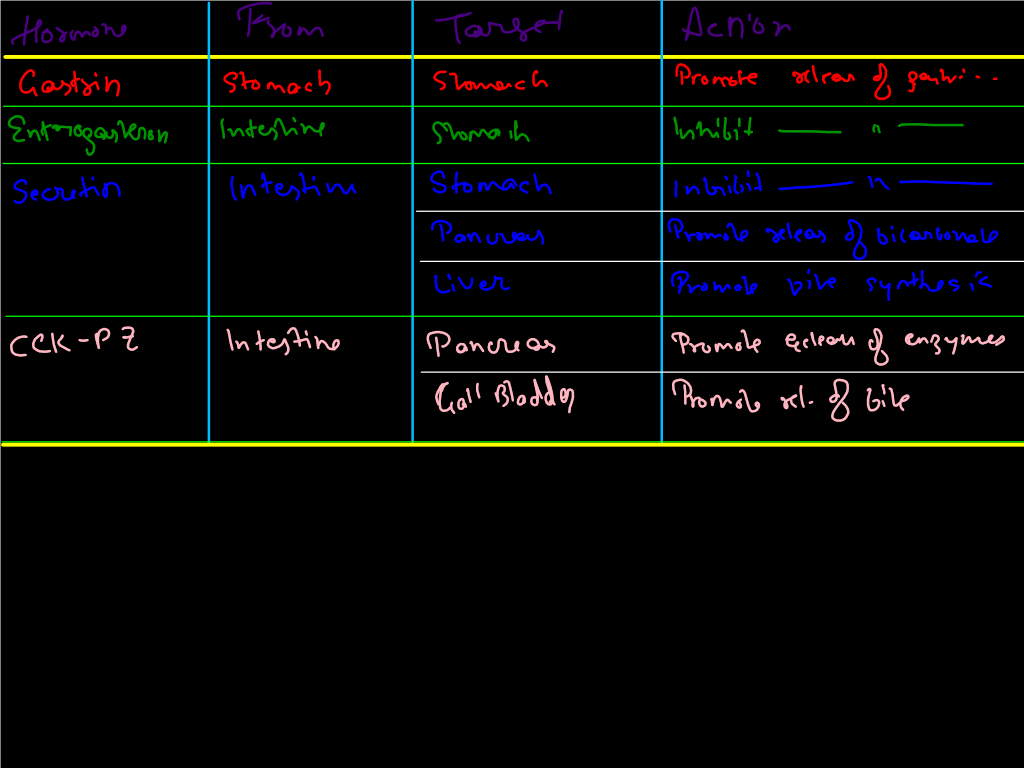 Hormone From Target Action
Gastrin Stomach Stomach Promote release of gastri...
Enterogasteron Intestine Stomach Inhibit —— " ——
Secretin Intestine Stomach Inhibit —— " ——
Pancreas Promote releas of bicarbonate
Liver Promote bile synthesis
CCK-PZ Intestine Pancreas Promote release of enzymes
Gall Bladder Promote rel. of bile